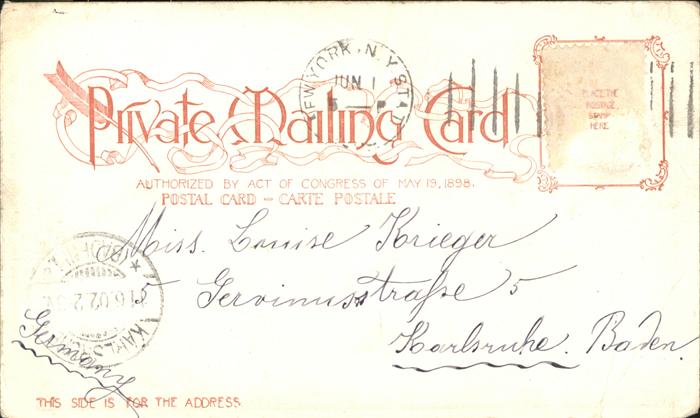 NEW YORK, N.Y. STA D
JUN 1
Private Mailing Card
PLACE THE
POSTAGE
STAMP
HERE
AUTHORIZED BY ACT OF CONGRESS OF MAY 19, 1898.
POSTAL CARD – CARTE POSTALE
Miss. Louise Krieger
5 Gervinusstraße 5
Karlsruhe. Baden.
Germany
THIS SIDE IS FOR THE ADDRESS.